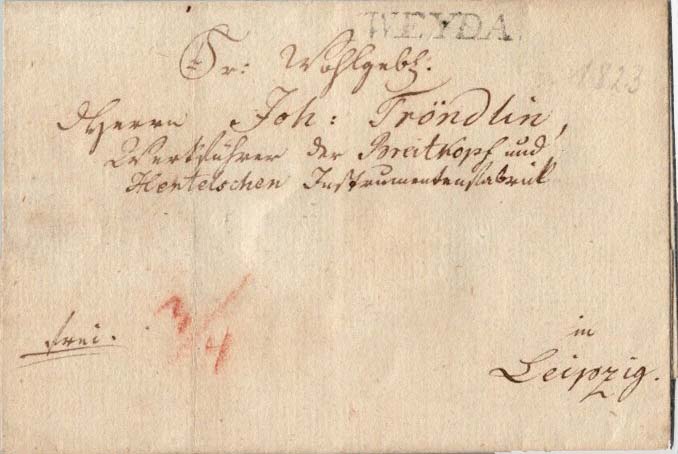 WEYDA.
1823
Sr: Wohlgeb:
Herrn Joh: Tröndlin,
Werkführer der Breitkopf und
Hertelschen Instrumentenfabrik
in
frei.
Leipzig.
3/4